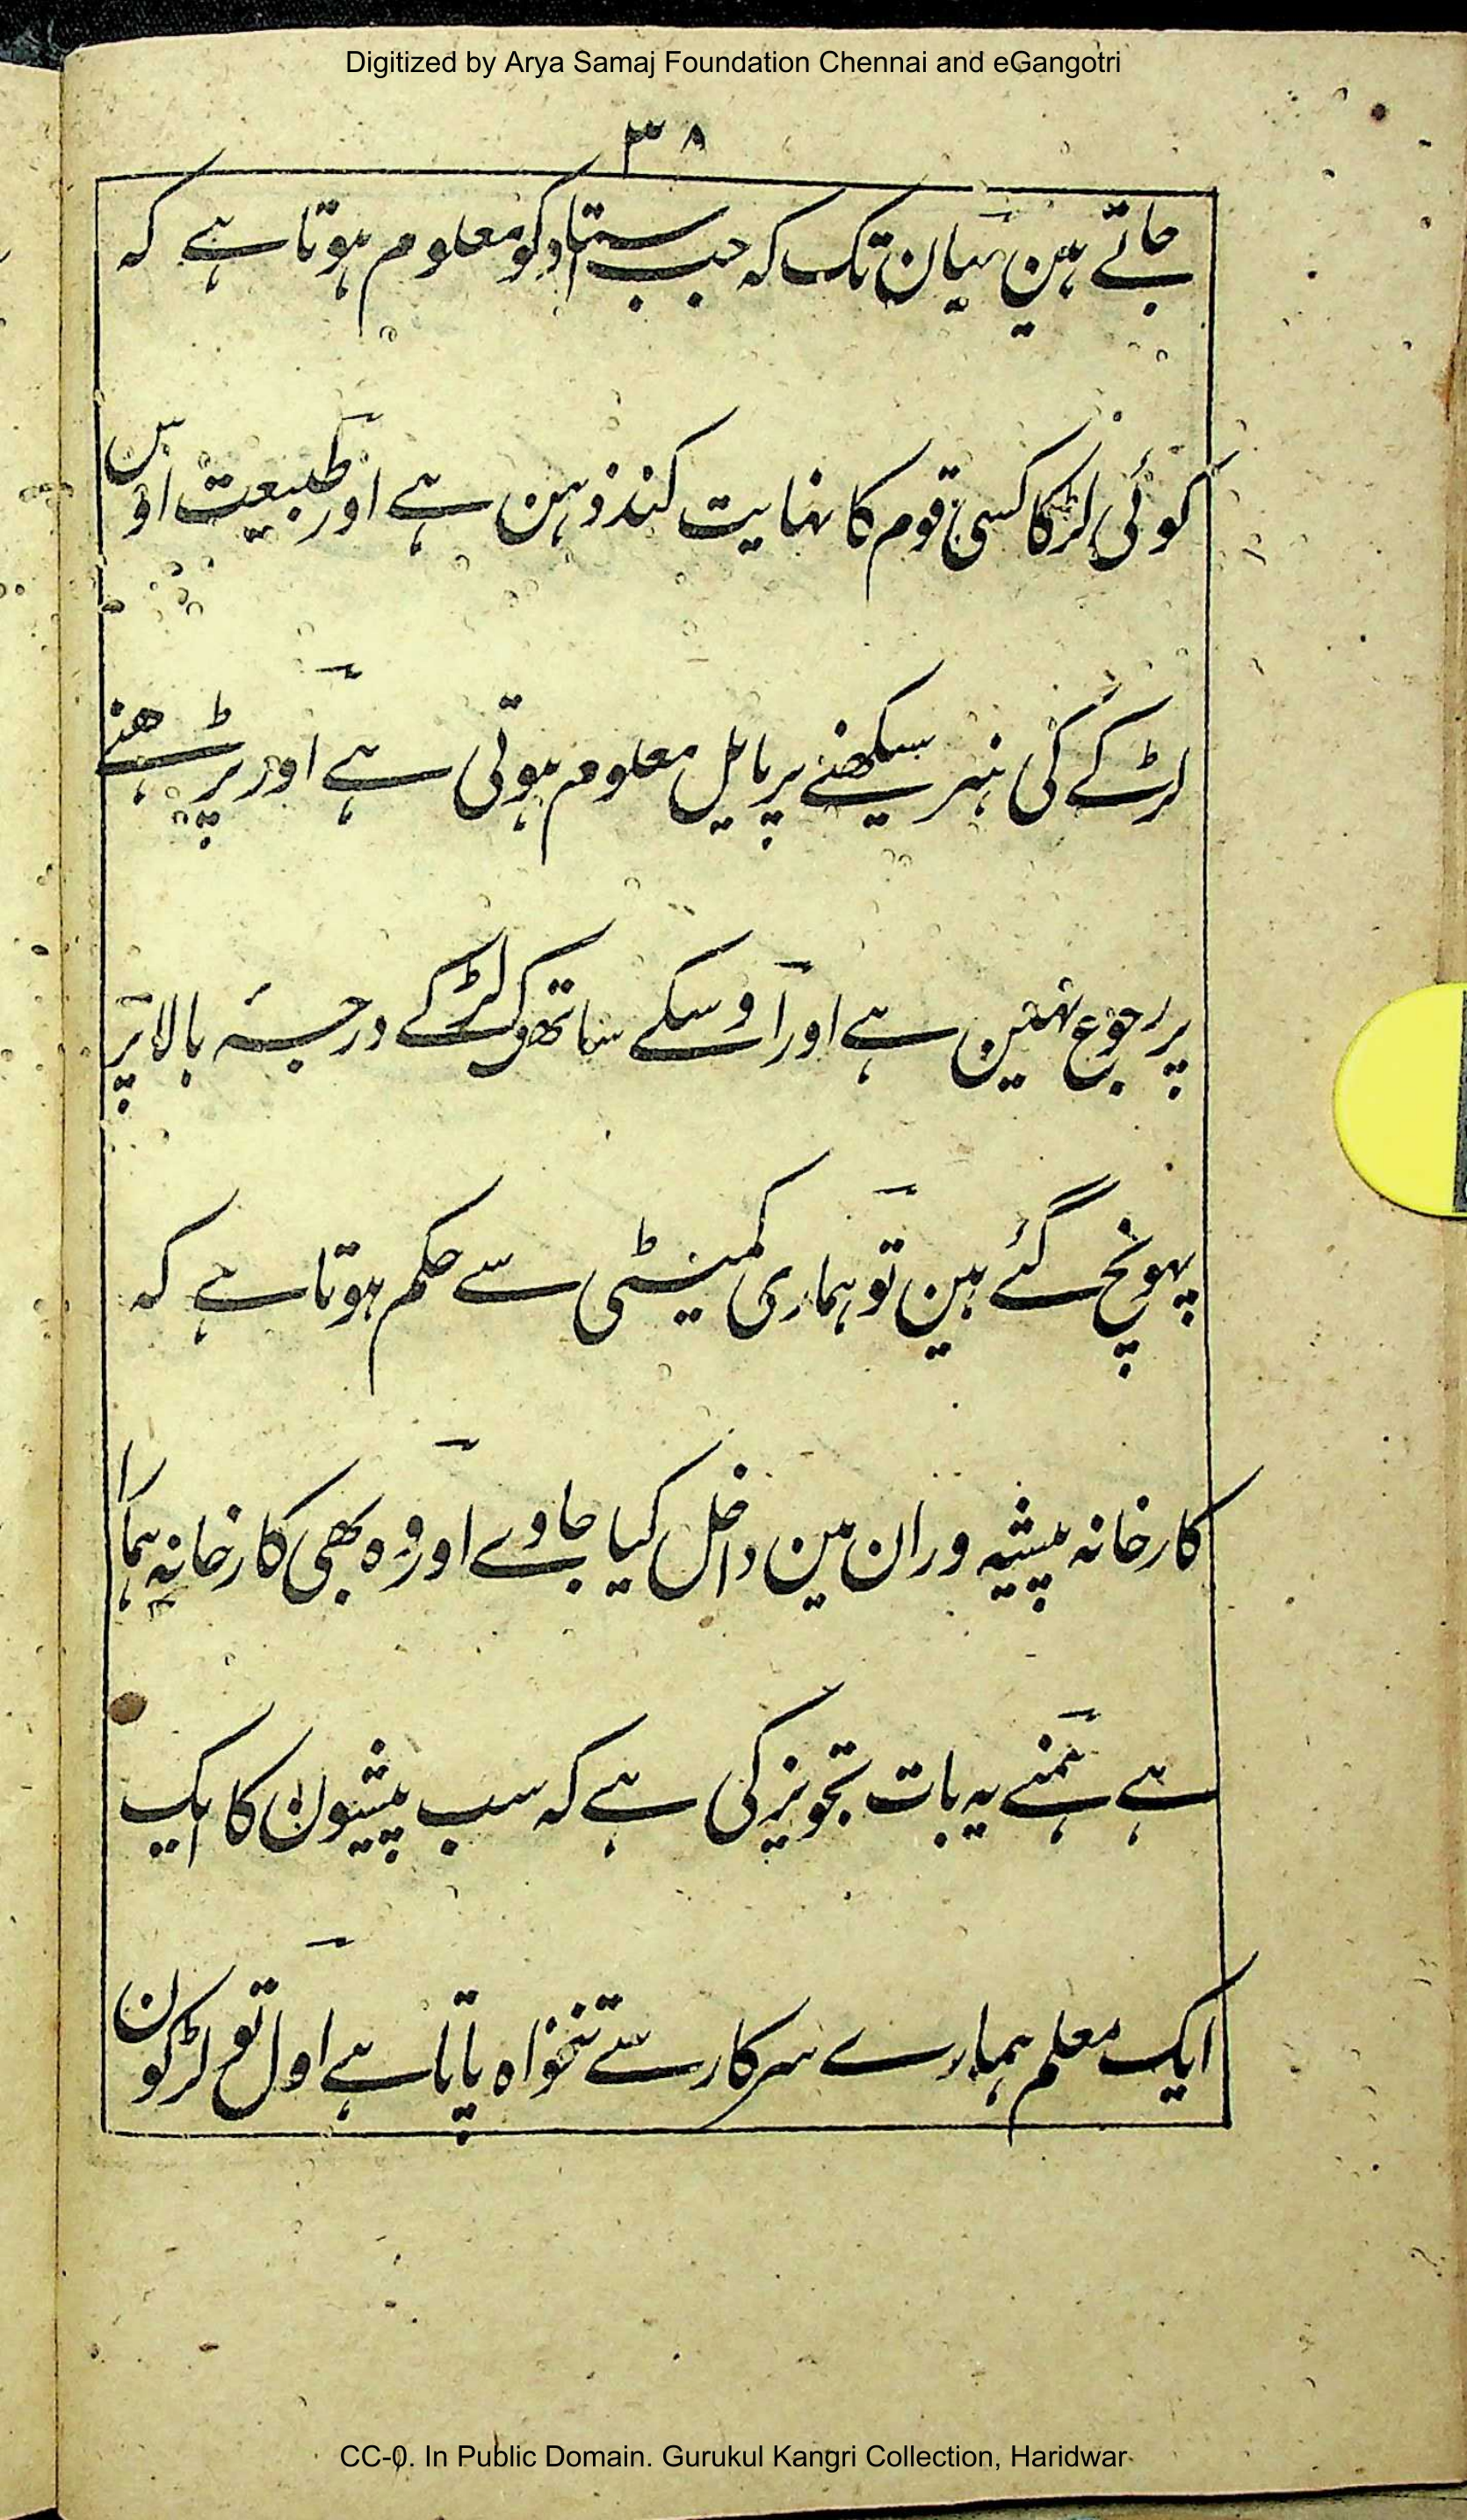 Digitized by Arya Samaj Foundation Chennai and eGangotri
۳۸
جاتے ہین یہان تک کہ جب استاد کو معلوم ہوتا ہے کہ
کوئی لڑکا کسی قوم کا نہایت کند ذہن ہے اور طبیعت اوس
لڑکے کی ہنر سیکھنے پر مایل معلوم ہوتی ہے اور پڑھنے
پر رجوع نہین ہے اور اوسکے ساتھ کے لڑکے درجۂ بالا پر
پہونچ گئے ہین تو ہماری کمیٹی سے حکم ہوتا ہے کہ
کارخانہ پیشہ وران مین داخل کیا جاوے اور وہ بھی کارخانہ ہمارا
ہے ہمنے یہ بات تجویز کی ہے کہ سب پیشیون کا ایک
ایک معلم ہمارے سرکار سے تنخواہ پاتا ہے اول تو لڑکون
CC-0. In Public Domain. Gurukul Kangri Collection, Haridwar